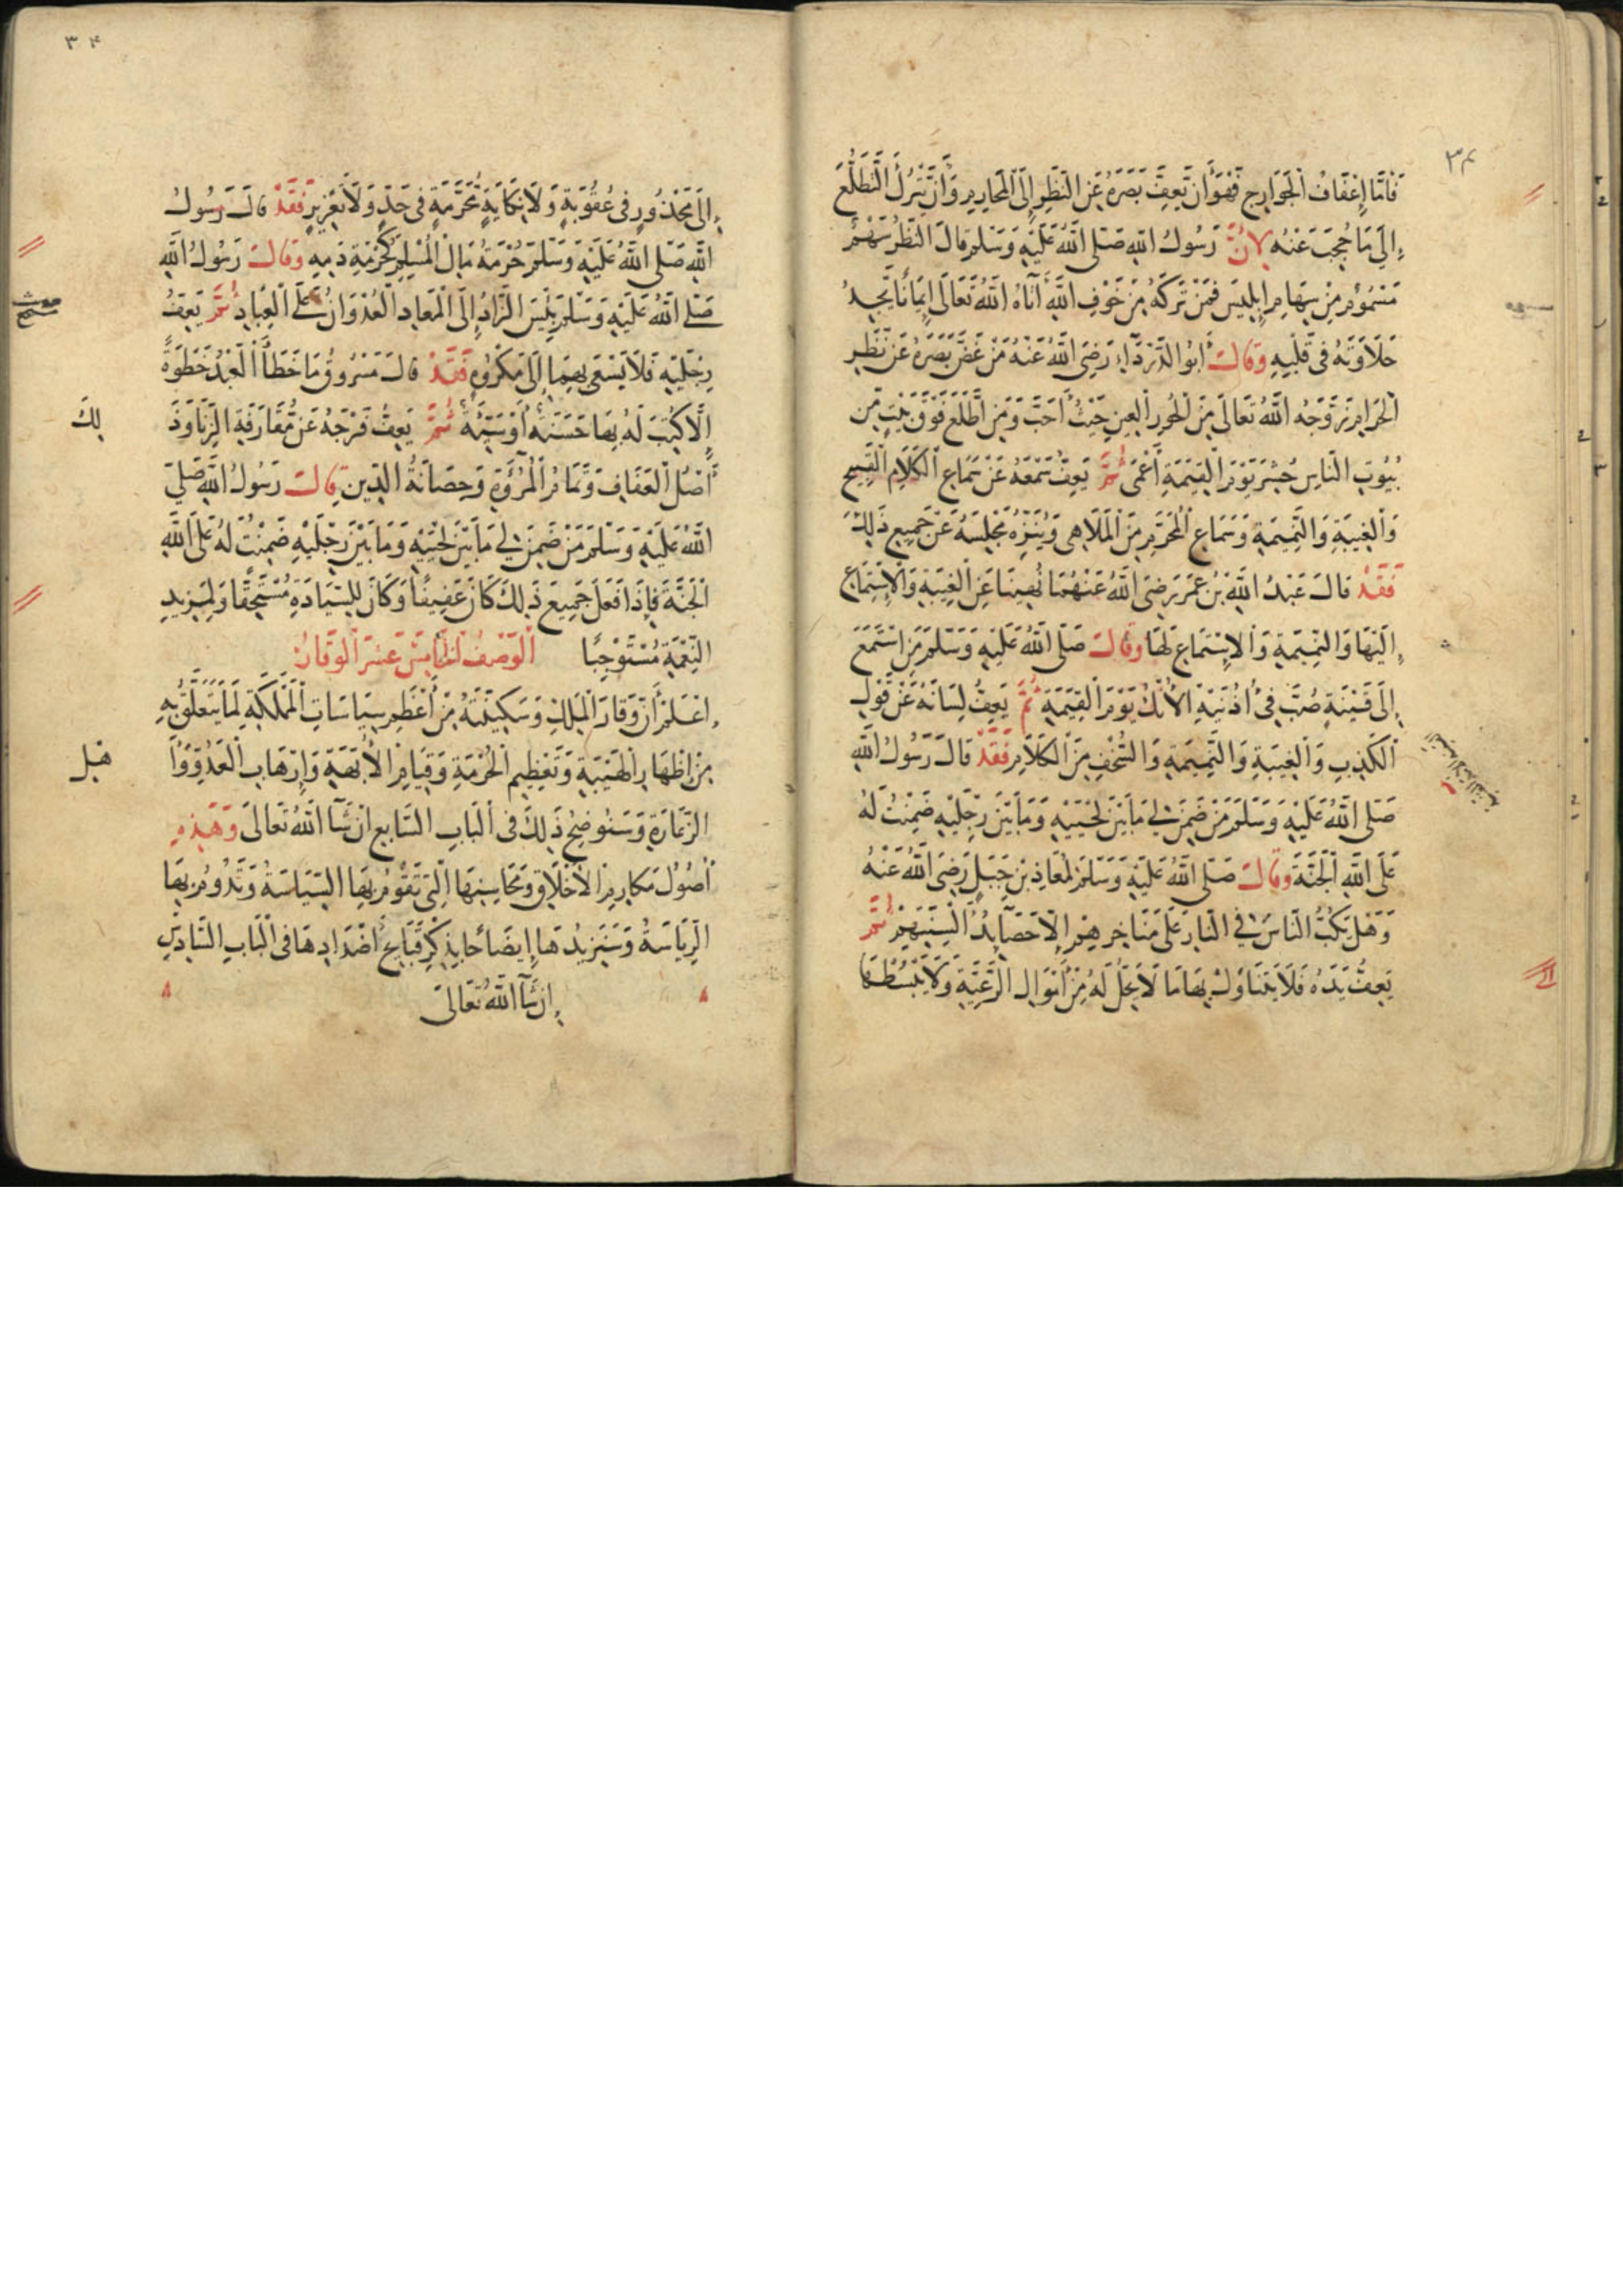 ٣٤
فَأَمَّا إِعْفَافُ الْجَوَارِحِ فَهُوَ أَنْ يَعِفَّ بَصَرَهُ عَنِ النَّظَرِ إِلَى الْمَحَارِمِ وَأَنْ يَتْرُكَ التَّطَلُّعَ
إِلَى مَا حُجِبَ عَنْهُ لِأَنَّ رَسُولَ اللهِ صَلَّى اللهُ عَلَيْهِ وَسَلَّمَ قَالَ النَّظَرُ سَهْمٌ
مَسْمُومٌ مِنْ سِهَامِ إِبْلِيسَ فَمَنْ تَرَكَهُ مِنْ خَوْفِ اللهِ آتَاهُ اللهُ تَعَالَى إِيمَانًا يَجِدُ
حَلَاوَتَهُ فِي قَلْبِهِ وَقَالَ أَبُو الدَّرْدَاءِ رَضِيَ اللهُ عَنْهُ مَنْ غَضَّ بَصَرَهُ عَنْ نَظَرِ
الْحَرَامِ زَوَّجَهُ اللهُ تَعَالَى مِنَ الْحُورِ الْعِينِ حَيْثُ أَحَبَّ وَمَنِ اطَّلَعَ فَوْقَ بَيْتٍ مِنْ
بُيُوتِ النَّاسِ حُشِرَ يَوْمَ الْقِيَمَةِ أَعْمَى ثُمَّ يَعِفُّ سَمْعَهُ عَنْ سَمَاعِ الْكَلَامِ الْقَبِيحِ
وَالْغِيبَةِ وَالنَّمِيمَةِ وَسَمَاعِ الْمُحَرَّمِ مِنَ الْمَلَاهِي وَيُنَزِّهُ مَجْلِسَهُ عَنْ جَمِيعِ ذَلِكَ
فَقَدْ قَالَ عَبْدُ اللهِ بْنُ عُمَرَ رَضِيَ اللهُ عَنْهُمَا نُهِينَا عَنِ الْغِيبَةِ وَالْإِسْتِمَاعِ
إِلَيْهَا وَالنَّمِيمَةِ وَالْإِسْتِمَاعِ لَهَا وَقَالَ صَلَّى اللهُ عَلَيْهِ وَسَلَّمَ مَنِ اسْتَمَعَ
إِلَى قَيْنَةٍ صُبَّ فِي أُذُنَيْهِ الْآنُكُ يَوْمَ الْقِيَمَةِ ثُمَّ يَعِفُّ لِسَانَهُ عَنْ قَوْلِ
الْكَذِبِ وَالْغِيبَةِ وَالنَّمِيمَةِ وَالسُّخْفِ مِنَ الْكَلَامِ فَقَدْ قَالَ رَسُولُ اللهِ
صَلَّى اللهُ عَلَيْهِ وَسَلَّمَ مَنْ ضَمِنَ لِي مَا بَيْنَ لَحْيَيْهِ وَمَا بَيْنَ رِجْلَيْهِ ضَمِنْتُ لَهُ
عَلَى اللهِ الْجَنَّةَ وَقَالَ صَلَّى اللهُ عَلَيْهِ وَسَلَّمَ لِمُعَاذِ بْنِ جَبَلٍ رَضِيَ اللهُ عَنْهُ
وَهَلْ يَكُبُّ النَّاسَ فِي النَّارِ عَلَى مَنَاخِرِهِمْ إِلَّا حَصَائِدُ أَلْسِنَتِهِمْ ثُمَّ
يَعِفُّ يَدَهُ فَلَا يَتَنَاوَلُ بِهَا مَا لَا يَحِلُّ لَهُ مِنْ أَمْوَالِ الرَّعِيَّةِ وَلَا يَبْسُطْهَا
٣٤
إِلَى مَحْذُورٍ فِي عُقُوبَةٍ وَلَا نِكَايَةٍ مُحَرَّمَةٍ فِي حَدٍّ وَلَا تَعْزِيرٍ فَقَدْ قَالَ رَسُولُ
اللهِ صَلَّى اللهُ عَلَيْهِ وَسَلَّمَ حُرْمَةُ مَالِ الْمُسْلِمِ كَحُرْمَةِ دَمِهِ وَقَالَ رَسُولُ اللهِ
صَلَّى اللهُ عَلَيْهِ وَسَلَّمَ بِئْسَ الزَّادُ إِلَى الْمَعَادِ الْعُدْوَانُ عَلَى الْعِبَادِ ثُمَّ يَعِفُّ
رِجْلَيْهِ فَلَا يَسْعَى بِهِمَا إِلَى مَكْرُوهٍ فَقَدْ قَالَ مَسْرُوقٌ مَا خَطَا الْعَبْدُ خَطْوَةً
إِلَّا كُتِبَ لَهُ بِهَا حَسَنَةٌ أَوْ سَيِّئَةٌ ثُمَّ يَعِفُّ فَرْجَهُ عَنْ مُقَارَفَةِ الزِّنَا وَذَ
لِكَ
أَصْلُ الْعَفَافِ وَتَمَامُ الْمُرُوَّةِ وَحِصَانَةُ الدِّينِ قَالَ رَسُولُ اللهِ صَلَّى
اللهُ عَلَيْهِ وَسَلَّمَ مَنْ ضَمِنَ لِي مَا بَيْنَ لَحْيَيْهِ وَمَا بَيْنَ رِجْلَيْهِ ضَمِنْتُ لَهُ عَلَى اللهِ
الْجَنَّةَ فَإِذَا فَعَلَ جَمِيعَ ذَلِكَ كَانَ عَفِيفًا وَكَانَ لِلسِّيَادَةِ مُسْتَحِقًّا وَلِمَزِيدِ
النِّعْمَةِ مُسْتَوْجِبًا الْوَصْفُ الْخَامِسَ عَشَرَ الْوَقَارُ
اعْلَمْ أَنَّ وَقَارَ الْمَلِكِ وَسَكِينَتَهُ مِنْ أَعْظَمِ سِيَاسَاتِ الْمَمْلَكَةِ لِمَا يَتَعَلَّقُ بِهِ
مِنْ إِظْهَارِ الْهَيْبَةِ وَتَعْظِيمِ الْحُرْمَةِ وَقِيَامِ الْأُبَّهَةِ وَإِرْهَابِ الْعَدُوِّ وَأَ
هْلِ
الزَّعَارَةِ وَسَنُوضِحُ ذَلِكَ فِي الْبَابِ السَّابِعِ إِنْ شَاءَ اللهُ تَعَالَى وَهَذِهِ
أُصُولُ مَكَارِمِ الْأَخْلَاقِ وَمَحَاسِنِهَا الَّتِي تَقُومُ بِهَا السِّيَاسَةُ وَتَدُومُ بِهَا
الرِّيَاسَةُ وَسَنَزِيدُهَا إِيضَاحًا بِذِكْرِ قَبَائِحِ أَضْدَادِهَا فِي الْبَابِ السَّادِسِ
إِنْ شَاءَ اللهُ تَعَالَى